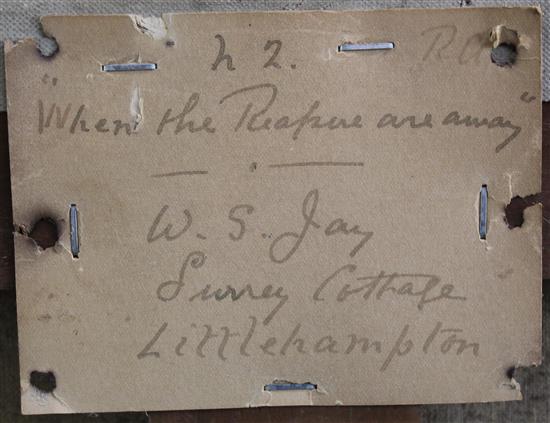 h 2. RA
"When the Reapers are away"
W. S. Jay
Surrey Cottage
Littlehampton